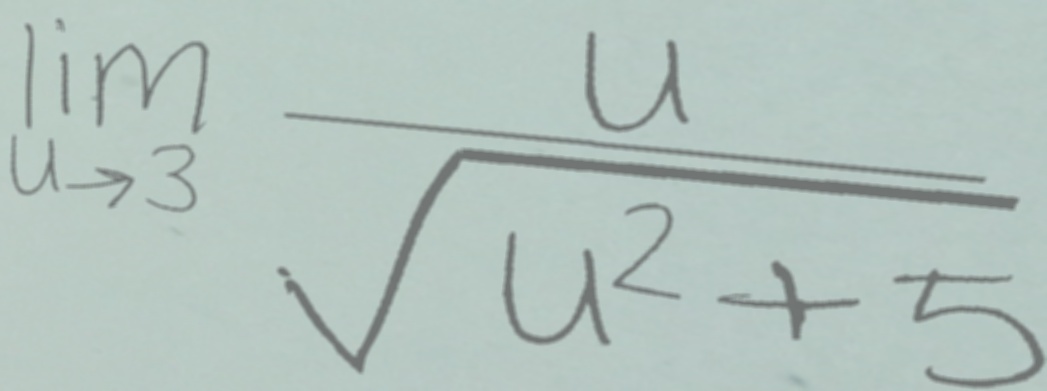 \lim_{u \to 3} \frac{u}{\sqrt{u^2+5}}